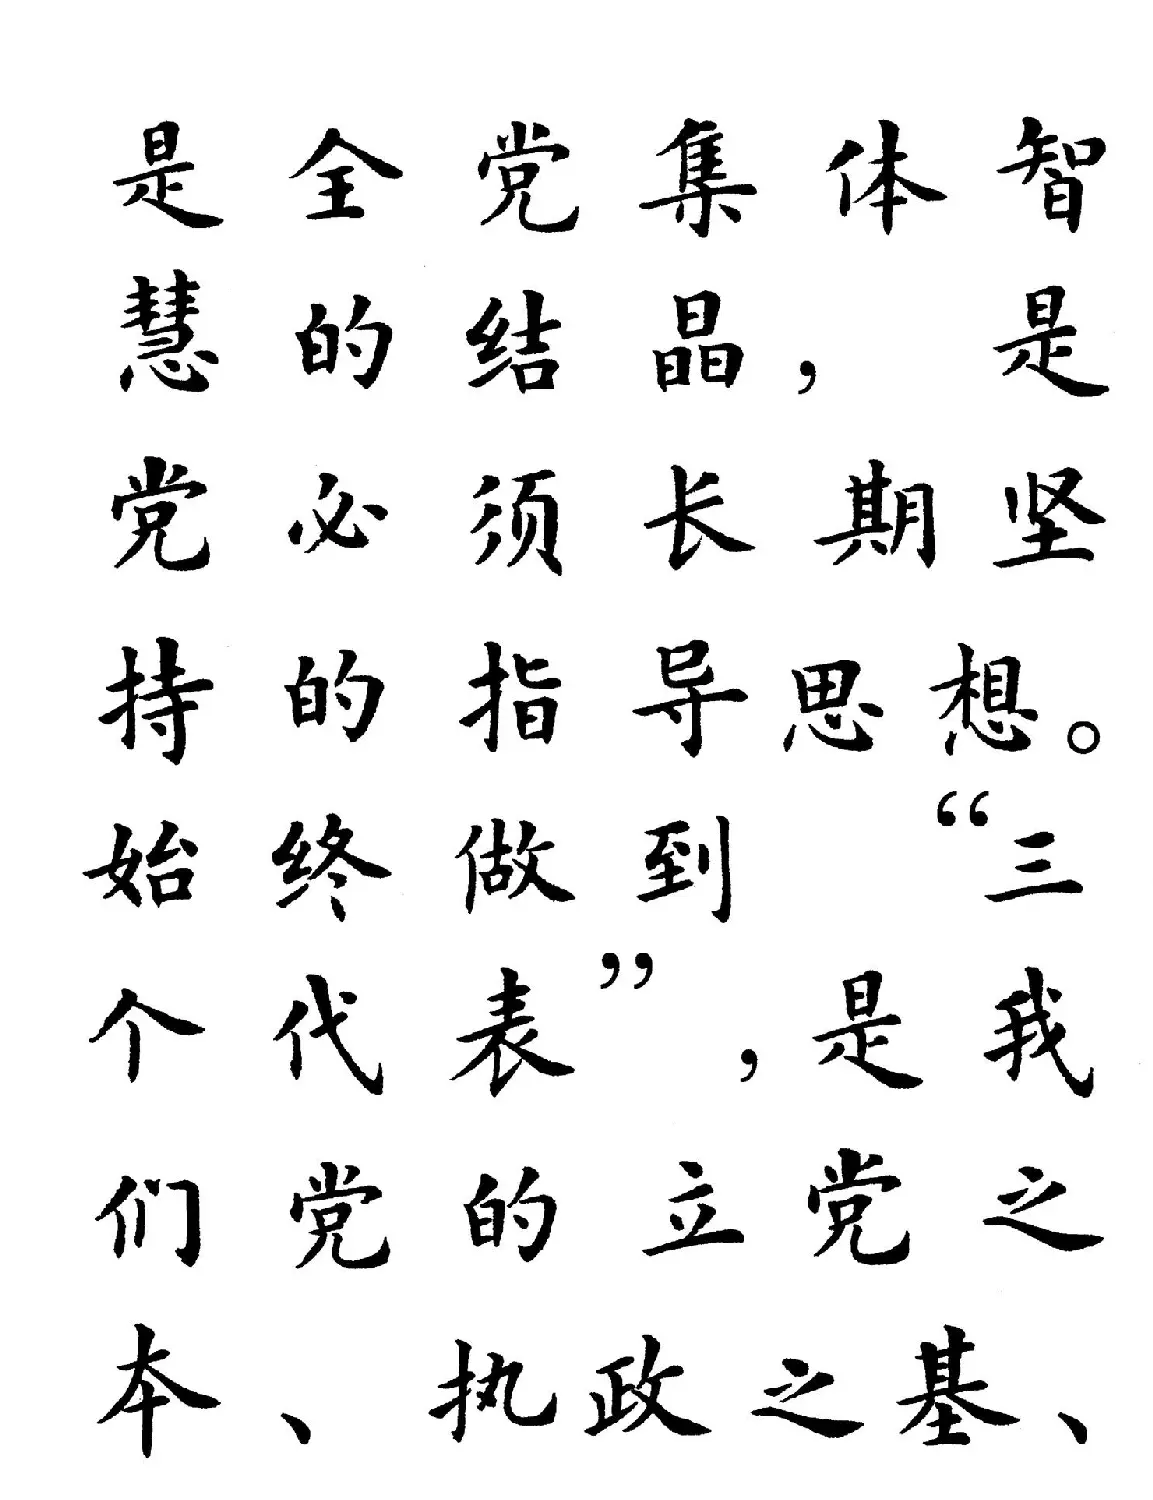 是全党集体智
慧的结晶，是
党必须长期坚
持的指导思想。
始终做到“三
个代表”，是我
们党的立党之
本、执政之基、